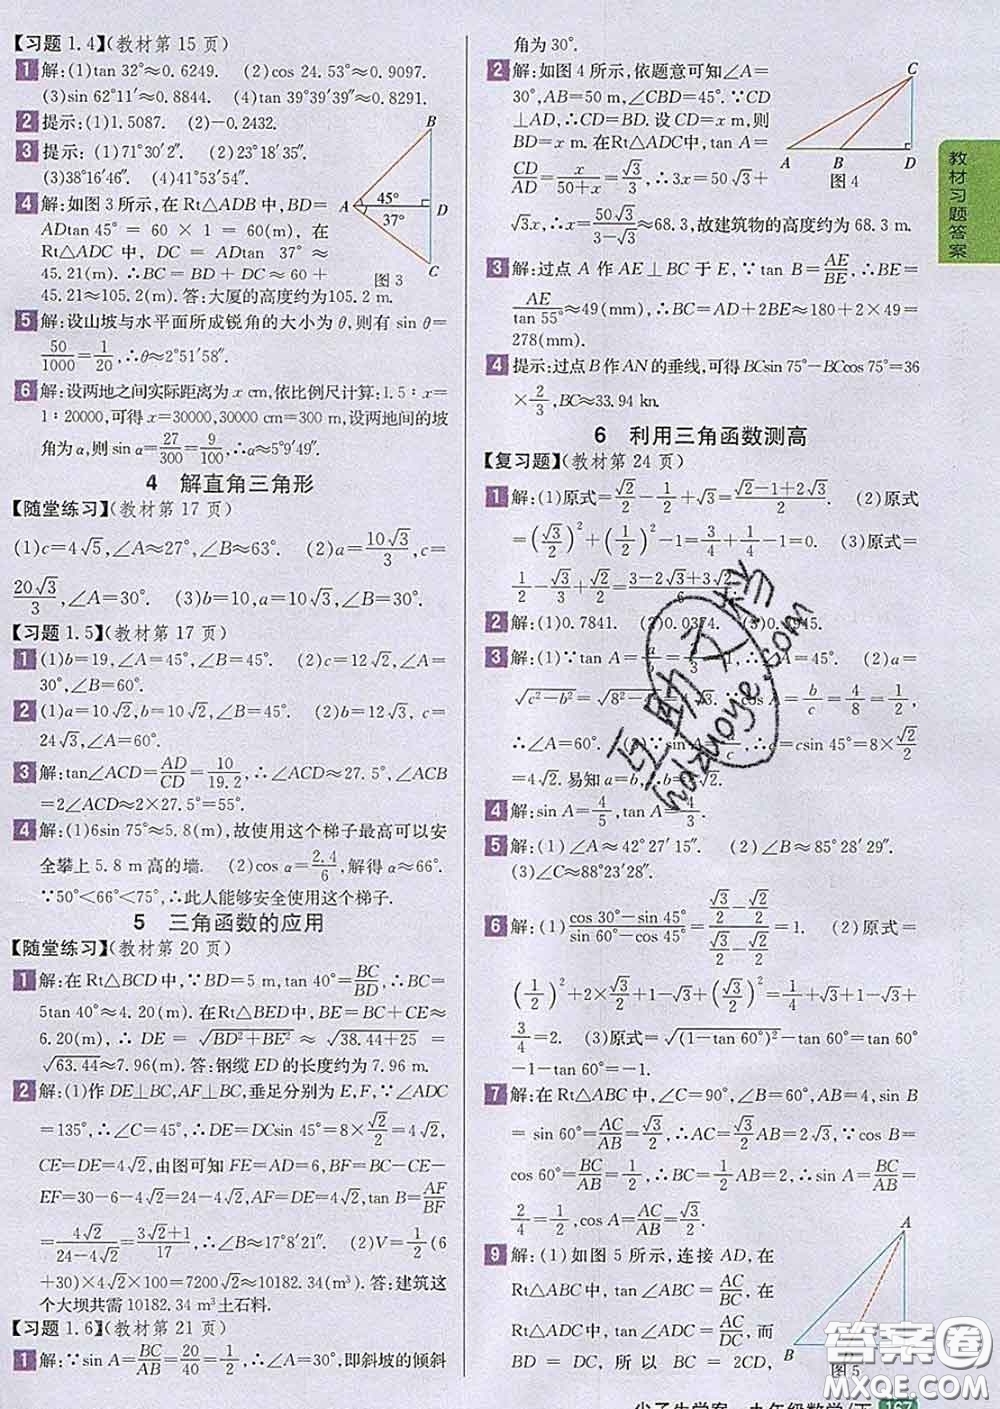 【习题 1.4】(教材第 15 页)
1 解:(1)tan 32°≈0.6249. (2)cos 24.53°≈0.9097.
(3)sin 62°11′≈0.8844. (4)tan 39°39′39″≈0.8291.
2 提示:(1)1.5087. (2)-0.2432.
3 提示:(1)71°30′2″. (2)23°18′35″.
(3)38°16′46″. (4)41°53′54″.
4 解:如图 3 所示,在 Rt△ADB 中,BD=
ADtan 45° = 60 × 1 = 60(m),在
Rt△ADC 中, DC = ADtan 37° ≈
45.21(m).∴BC = BD + DC ≈ 60 +
45.21≈105.2(m).答:大厦的高度约为105.2 m.
B
A 45° 37° D
C
图 3
5 解:设山坡与水平面所成锐角的大小为 θ,则有 sin θ=
50/1000=1/20,∴θ≈2°51′58″.
6 解:设两地之间实际距离为 x cm,依比例尺计算:1.5∶x=
1∶20000,可得 x=30000,30000 cm=300 m,设两地间的坡
角为 α,则有 sin α=27/300=9/100,∴α≈5°9′49″.
4 解直角三角形
【随堂练习】(教材第 17 页)
(1)c=4√5,∠A≈27°,∠B≈63°. (2)a=10√3/3,c=
20√3/3,∠A=30°. (3)b=10,a=10√3,∠B=30°.
【习题 1.5】(教材第 17 页)
1 (1)b=19,∠A=45°,∠B=45°. (2)c=12√2,∠A=
30°,∠B=60°.
2 (1)a=10√2,b=10√2,∠B=45°. (2)b=12, c=
24√3,∠A=60°.
3 解:tan∠ACD=AD/CD=10/19.2,∴∠ACD≈27.5°,∠ACB
=2∠ACD≈2×27.5°=55°.
4 解:(1)6sin 75°≈5.8(m),故使用这个梯子最高可以安
全攀上 5.8 m 高的墙. (2)cos α=2.4/6,解得 α≈66°.
∵50°<66°<75°,∴此人能够安全使用这个梯子.
5 三角函数的应用
【随堂练习】(教材第 20 页)
1 解:在 Rt△BCD 中,∵BD=5 m,tan 40°=BC/BD,∴BC=
5tan 40°≈4.20(m).在 Rt△BED中,BE=BC+CE≈
6.20(m).∴ DE = √(BD²+BE²) ≈ √(38.44+25) =
√63.44≈7.96(m).答:钢缆 ED 的长度约为 7.96 m.
2 解:(1)作 DE⊥BC,AF⊥BC,垂足分别为 E,F,∵∠ADC
=135°,∴∠C=45°,∴DE=DCsin 45°=8×√2/2=4√2,
CE=DE=4√2,由图可知 FE=AD=6,BF=BC-CE-
EF=30-6-4√2=24-4√2,AF=DE=4√2,tan B=AF/BF
=4√2/(24-4√2)=(3√2+1)/17,∴∠B≈17°8′21″. (2)V=1/2(6
+30)×4√2×100=7200√2≈10182.34(m³).答:建筑这
个大坝共需 10182.34 m³土石料.
【习题 1.6】(教材第 21 页)
1 解:∵sin A=BC/AB=20/40=1/2,∴∠A=30°,即斜坡的倾斜
角为 30°.
2 解:如图 4 所示,依题意可知∠A=
30°,AB=50 m,∠CBD=45°.∵CD
⊥AD,∴CD=BD.设 CD=x m,则
BD=x m.在 Rt△ACD 中,tan A=
CD/AD=x/(50+x)=√3/3,∴3x=50√3+
√3x,x=50√3/(3-√3)≈68.3,故建筑物的高度约为 68.3 m.
C
A B D
图 4
3 解:过点 A 作 AE⊥BC 于 E,∵tan B=AE/BE,∴BE=
AE/tan 55°≈49(mm),∴BC=AD+2BE≈180+2×49=
278(mm).
4 提示:过点 B 作 AN 的垂线,可得 BCsin 75°-BCcos 75°=36
×2/3,BC≈33.94 kn.
6 利用三角函数测高
【复习题】(教材第 24 页)
1 解:(1)原式=√2/2-1/2+√3=(√2-1+2√3)/2. (2)原式
=(√3/2)²+(1/2)²-1=3/4+1/4-1=0. (3)原式=
1/2-√3/3+√2/2=(3-2√3+3√2)/6.
2 解:(1)0.7841. (2)0.0374. (3)0.7945.
3 解:(1)∵tan A=a/b=√3/3
√(c²-b²)=√(8²-4²)=
∴∠A=60°.
=4√2.易知 a=b,∴b=4√2.
4 解:sin A=4/5,tan A=4/3.
5 解:(1)∠A≈42°27′15″. (2)∠B≈85°28′29″.
(3)∠C≈88°23′28″.
6 解:(1)(cos 30°-sin 45°)/(sin 60°-cos 45°)=(√3/2-√2/2)/(√3/2-√2/2)=1. (2)原式=
(1/2)²+2×√3/2×1/√3+(√3/2)²=1/4+√3×1/√3+
3/4=2. (3)原式=√((1-tan 60°)²)-tan 60°=tan 60°
-1-tan 60°=-1.
7 解:在 Rt△ABC 中,∠C=90°,∠B=60°,AB=4,sin B
= sin 60°=AC/AB=√3/2,∴AC=√3/2AB=2√3,cos B=
cos 60°=BC/AB=1/2,∴BC=1/2AB=2,∴sin A=BC/AB=
2/4=1/2,cos A=AC/AB=√3/2.
9 解:(1)如图 5 所示,连接 AD,在
Rt△ABC 中, tan∠ABC = AC/BC,在
Rt△ADC 中, tan∠ADC = AC/DC,而
BD = DC, 所 以 BC = 2CD,
A
B D C
图 5
教材习题答案
互助文档
hdzuoye.com
答案圈
MXQE.COM
尖子生学案 九年级数学/下 167